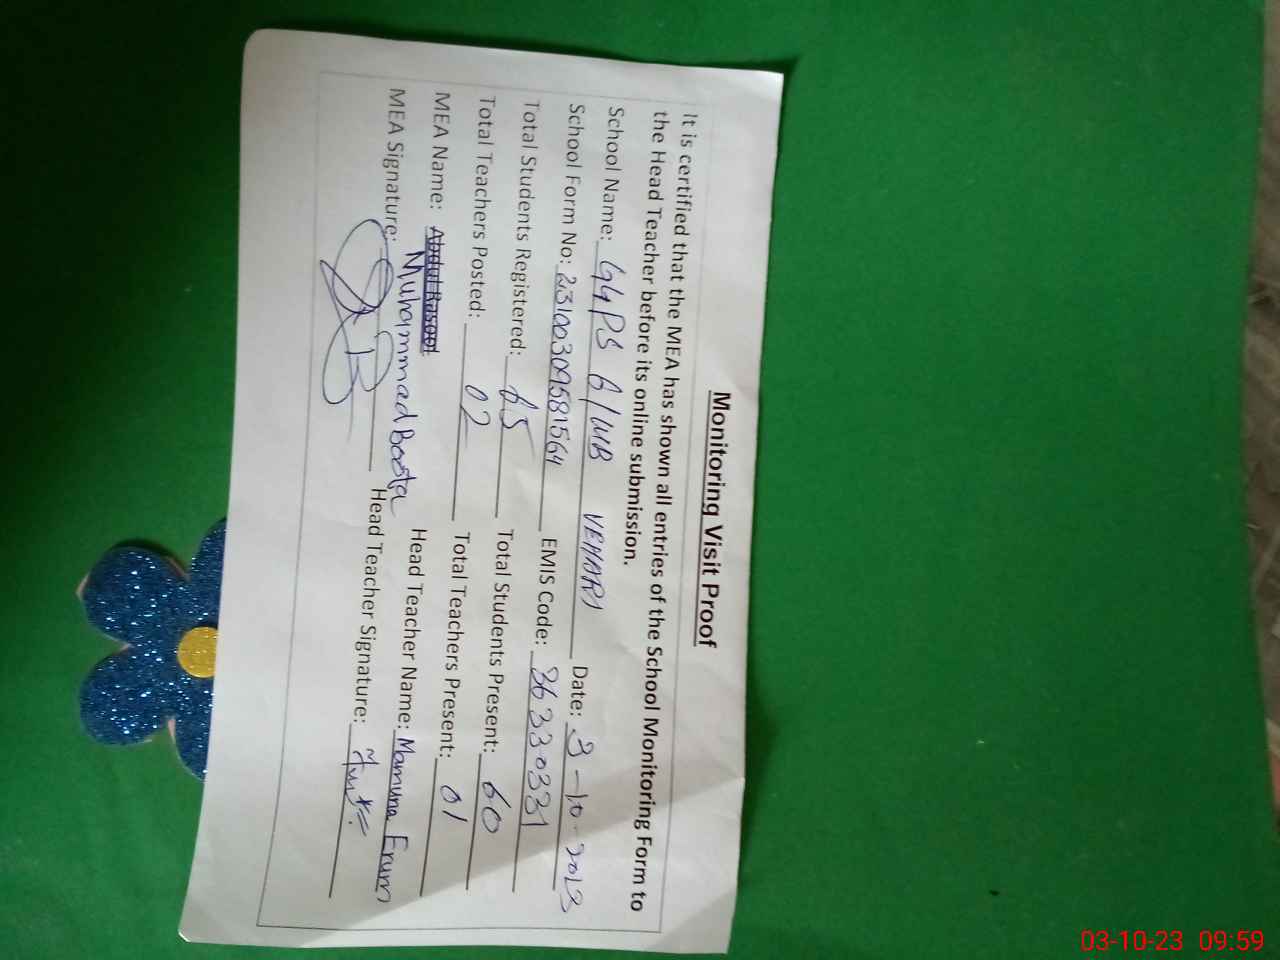 Monitoring Visit Proof
It is certified that the MEA has shown all entries of the School Monitoring Form to
the Head Teacher before its online submission.
School Name: GGPS 6/WB VEHARI Date: 3-10-2023
School Form No: 23100309581564 EMIS Code: 36330331
Total Students Registered: 65 Total Students Present: 60
Total Teachers Posted: 02 Total Teachers Present: 01
MEA Name: Abdul Rasool Muhammad Boota Head Teacher Name: Mamuna Erum
MEA Signature: Head Teacher Signature:
03-10-23 09:59